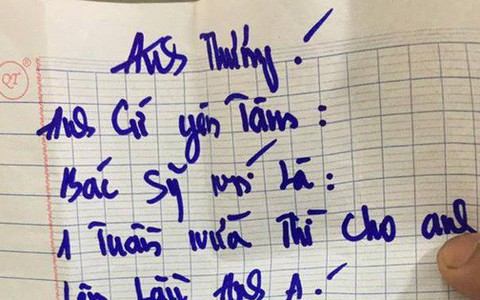 QT
Anh Thướng !
Anh Cứ yên Tâm :
Bác Sỹ nói Là :
1 Tuần nữa Thì Cho anh
Lên